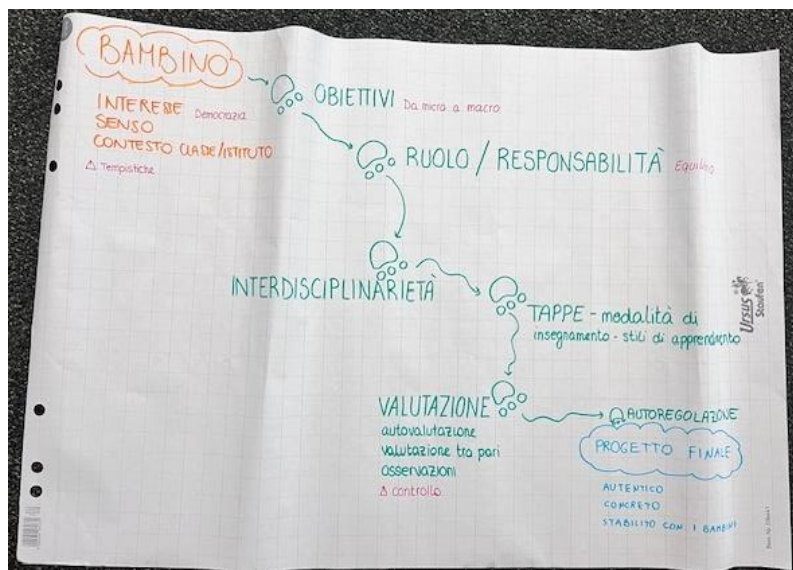 BAMBINO
INTERESSE Democrazia
SENSO
CONTESTO CLASSE/ISTITUTO
△ Tempistiche
OBIETTIVI Da micro a macro
RUOLO / RESPONSABILITÀ Equilibrio
INTERDISCIPLINARIETÀ
TAPPE - modalità di
insegnamento - stili di apprendimento
VALUTAZIONE
autovalutazione
valutazione tra pari
osservazioni
△ controllo
AUTOREGOLAZIONE
PROGETTO FINALE
AUTENTICO
CONCRETO
STABILITO CON I BAMBINI
Ursus
Staufen